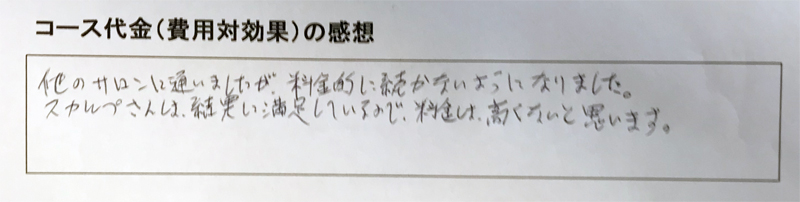 コース代金（費用対効果）の感想
他のサロンに通いましたが、料金的に続かないようになりました。
スカルプさんは、結果に満足しているので、料金は、高くないと思います。